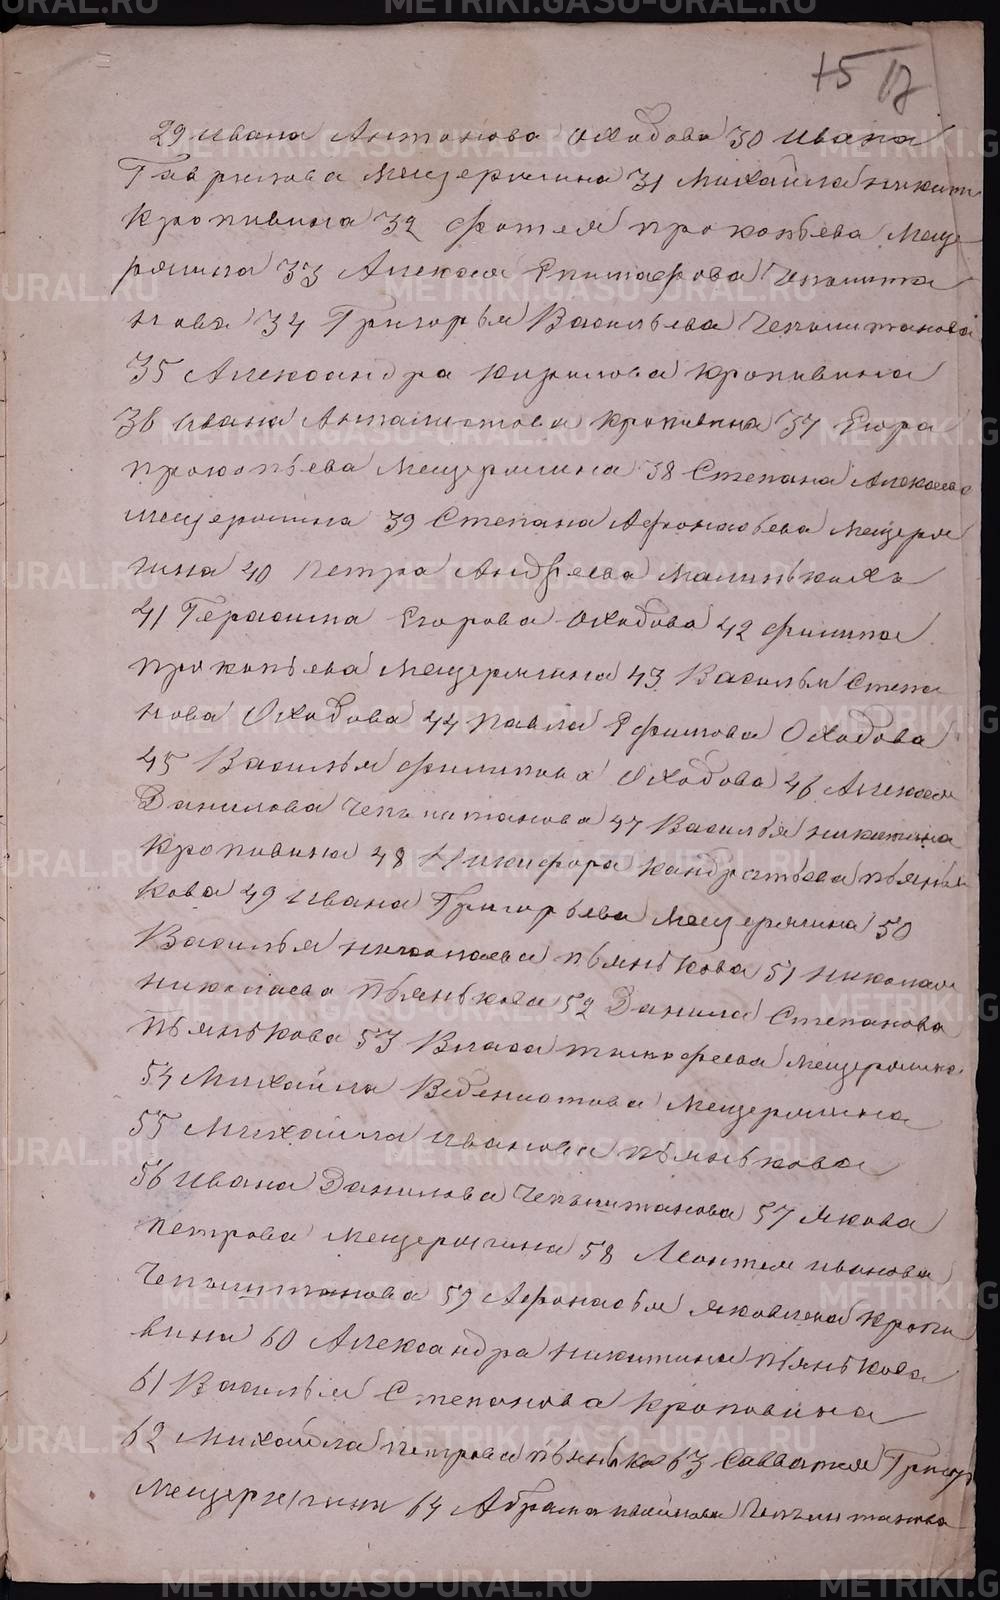 29 Ивана Антонова Оходова 30 Ивана
Гаврилова Мещерягина 31 Михайла Никит
Кропивина 32 Фотея Прокопьева Меще
рягина 33 Алексея Епитаѳрова Чепчита
нова 34 Григорья Васильева Чепчитанова
35 Александра Кирилова Кропивина
36 Ивана Кропивина 37 Егора
Прокопьева Мещерягина 38 Степана Алексеева
Мещерягина 39 Степана Афонасьева Мещеря
гина 40 Петра Андреева Малинькихъ
41 Герасима Егорова Оходова 42 Филипа
Прокопьева Мещерягина 43 Василья Степа
нова Оходова 44 Павла Ефимова Оходова
45 Василья Филипова Оходова 46 Алексея
Данилова Чепчитанова 47 Василья Никитина
Кропивина 48 Никифора Кандратьева Пьянь
кова 49 Ивана Григорьева Мещерягина 50
Василья Николаева Пьянькова 51 Николая
Николаева Пьянькова 52 Данила Степанова
Пьянькова 53 Власа Тимофеева Мещерягина
54 Михайла Веденистова Мещерягина
55 Михайла Иванова Пьянькова
56 Ивана Данилова Чепчитанова 57 Якова
Петрова Мещерягина 58 Леонтея Иванова
Чепчитанова 59 Афонасья Яковлева Кропи
вина 60 Александра Никитина Пьянькова
61 Василья Степанова Кропивина
62 Михайла Петрова Пьяньк 63 Савватея Григор
Мещерягина 64 Абрама Чепчитанова
METRIKI.GASO-URAL.RU